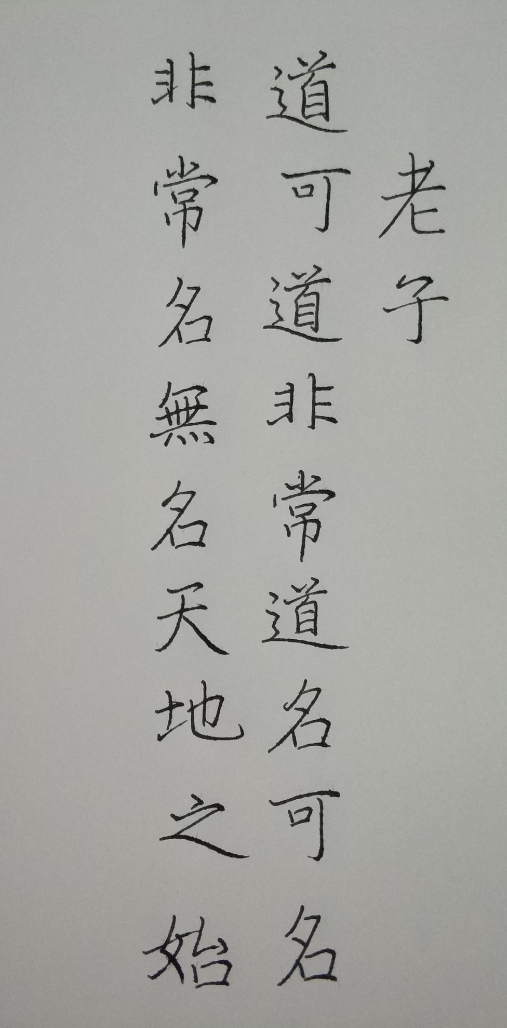 老子
道可道非常道名可名
非常名無名天地之始